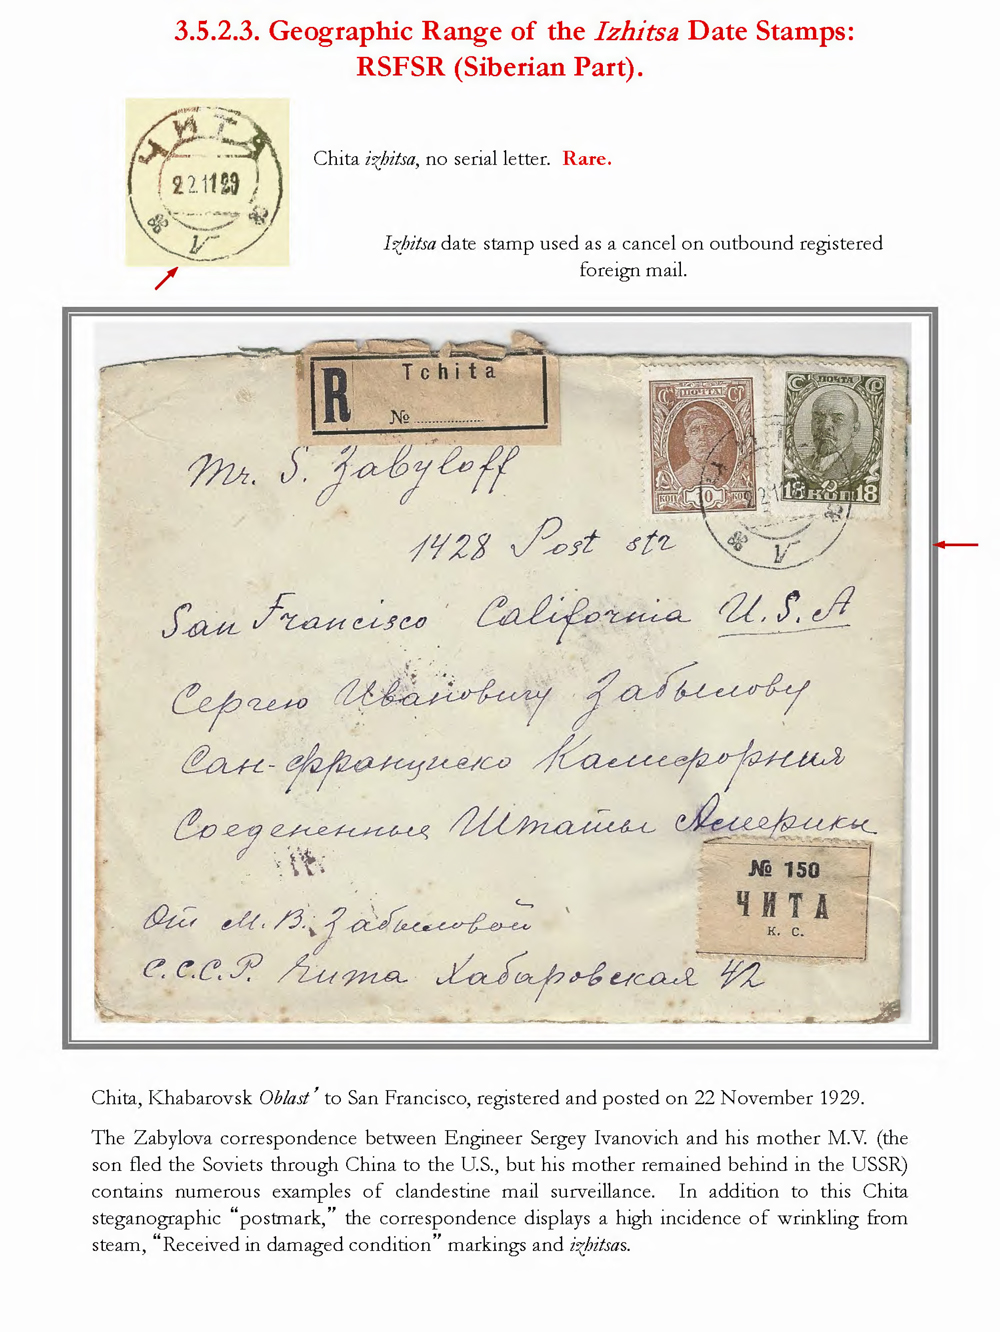 3.5.2.3. Geographic Range of the Izhitsa Date Stamps:
RSFSR (Siberian Part).
ЧИТА
22.11 29
V
Chita izhitsa, no serial letter. Rare.
Izhitsa date stamp used as a cancel on outbound registered
foreign mail.
R
Tchita
№
ПОЧТА
ПОЧТА
КОП
18 КОП 18
V
Mr. S. Zabyloff
1428 Post str
San Francisco California U.S.A
Сергею Ивановичу Забылову
Сан-франциско Калифорния
Соедененные Штаты Америки
№ 150
ЧИТА
К. С.
От М. В. Забыловой
С.С.С.Р. Чита Хабаровская 42
Chita, Khabarovsk Oblast' to San Francisco, registered and posted on 22 November 1929.
The Zabylova correspondence between Engineer Sergey Ivanovich and his mother M.V. (the
son fled the Soviets through China to the U.S., but his mother remained behind in the USSR)
contains numerous examples of clandestine mail surveillance. In addition to this Chita
steganographic “postmark,” the correspondence displays a high incidence of wrinkling from
steam, “Received in damaged condition” markings and izhitsas.